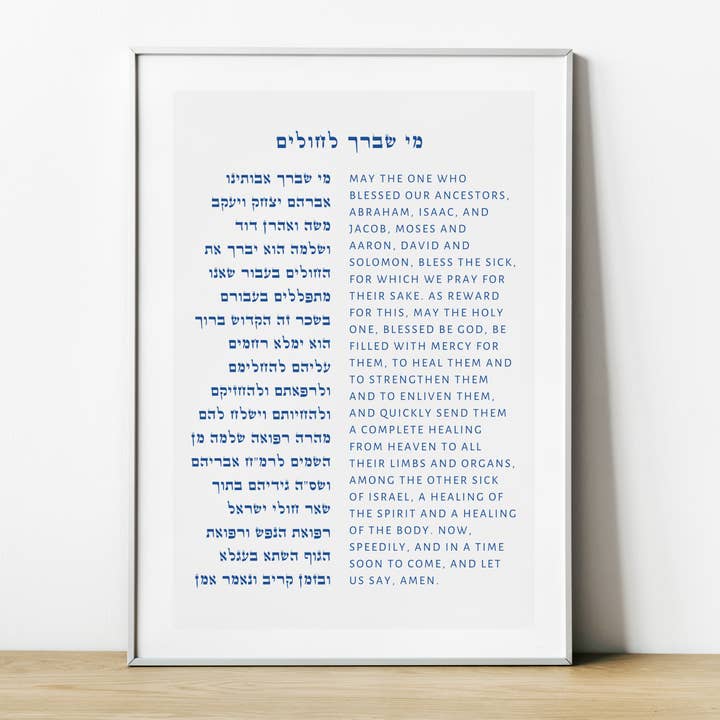 מי שברך לחולים
מי שברך אבותינו
אברהם יצחק ויעקב
משה ואהרן דוד
ושלמה הוא יברך את
החולים בעבור שאנו
מתפללים בעבורם
בשכר זה הקדוש ברוך
הוא ימלא רחמים
עליהם להחלימם
ולרפאתם ולהחזיקם
ולהחיותם וישלח להם
מהרה רפואה שלמה מן
השמים לרמ"ח אבריהם
ושס"ה גידיהם בתוך
שאר חולי ישראל
רפואת הנפש ורפואת
הגוף השתא בעגלא
ובזמן קריב ונאמר אמן
MAY THE ONE WHO
BLESSED OUR ANCESTORS,
ABRAHAM, ISAAC, AND
JACOB, MOSES AND
AARON, DAVID AND
SOLOMON, BLESS THE SICK,
FOR WHICH WE PRAY FOR
THEIR SAKE. AS REWARD
FOR THIS, MAY THE HOLY
ONE, BLESSED BE GOD, BE
FILLED WITH MERCY FOR
THEM, TO HEAL THEM AND
TO STRENGTHEN THEM
AND TO ENLIVEN THEM,
AND QUICKLY SEND THEM
A COMPLETE HEALING
FROM HEAVEN TO ALL
THEIR LIMBS AND ORGANS,
AMONG THE OTHER SICK
OF ISRAEL, A HEALING OF
THE SPIRIT AND A HEALING
OF THE BODY. NOW,
SPEEDILY, AND IN A TIME
SOON TO COME, AND LET
US SAY, AMEN.